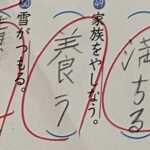 満ちる
家族をやしなう。
養う
雪がつもる。